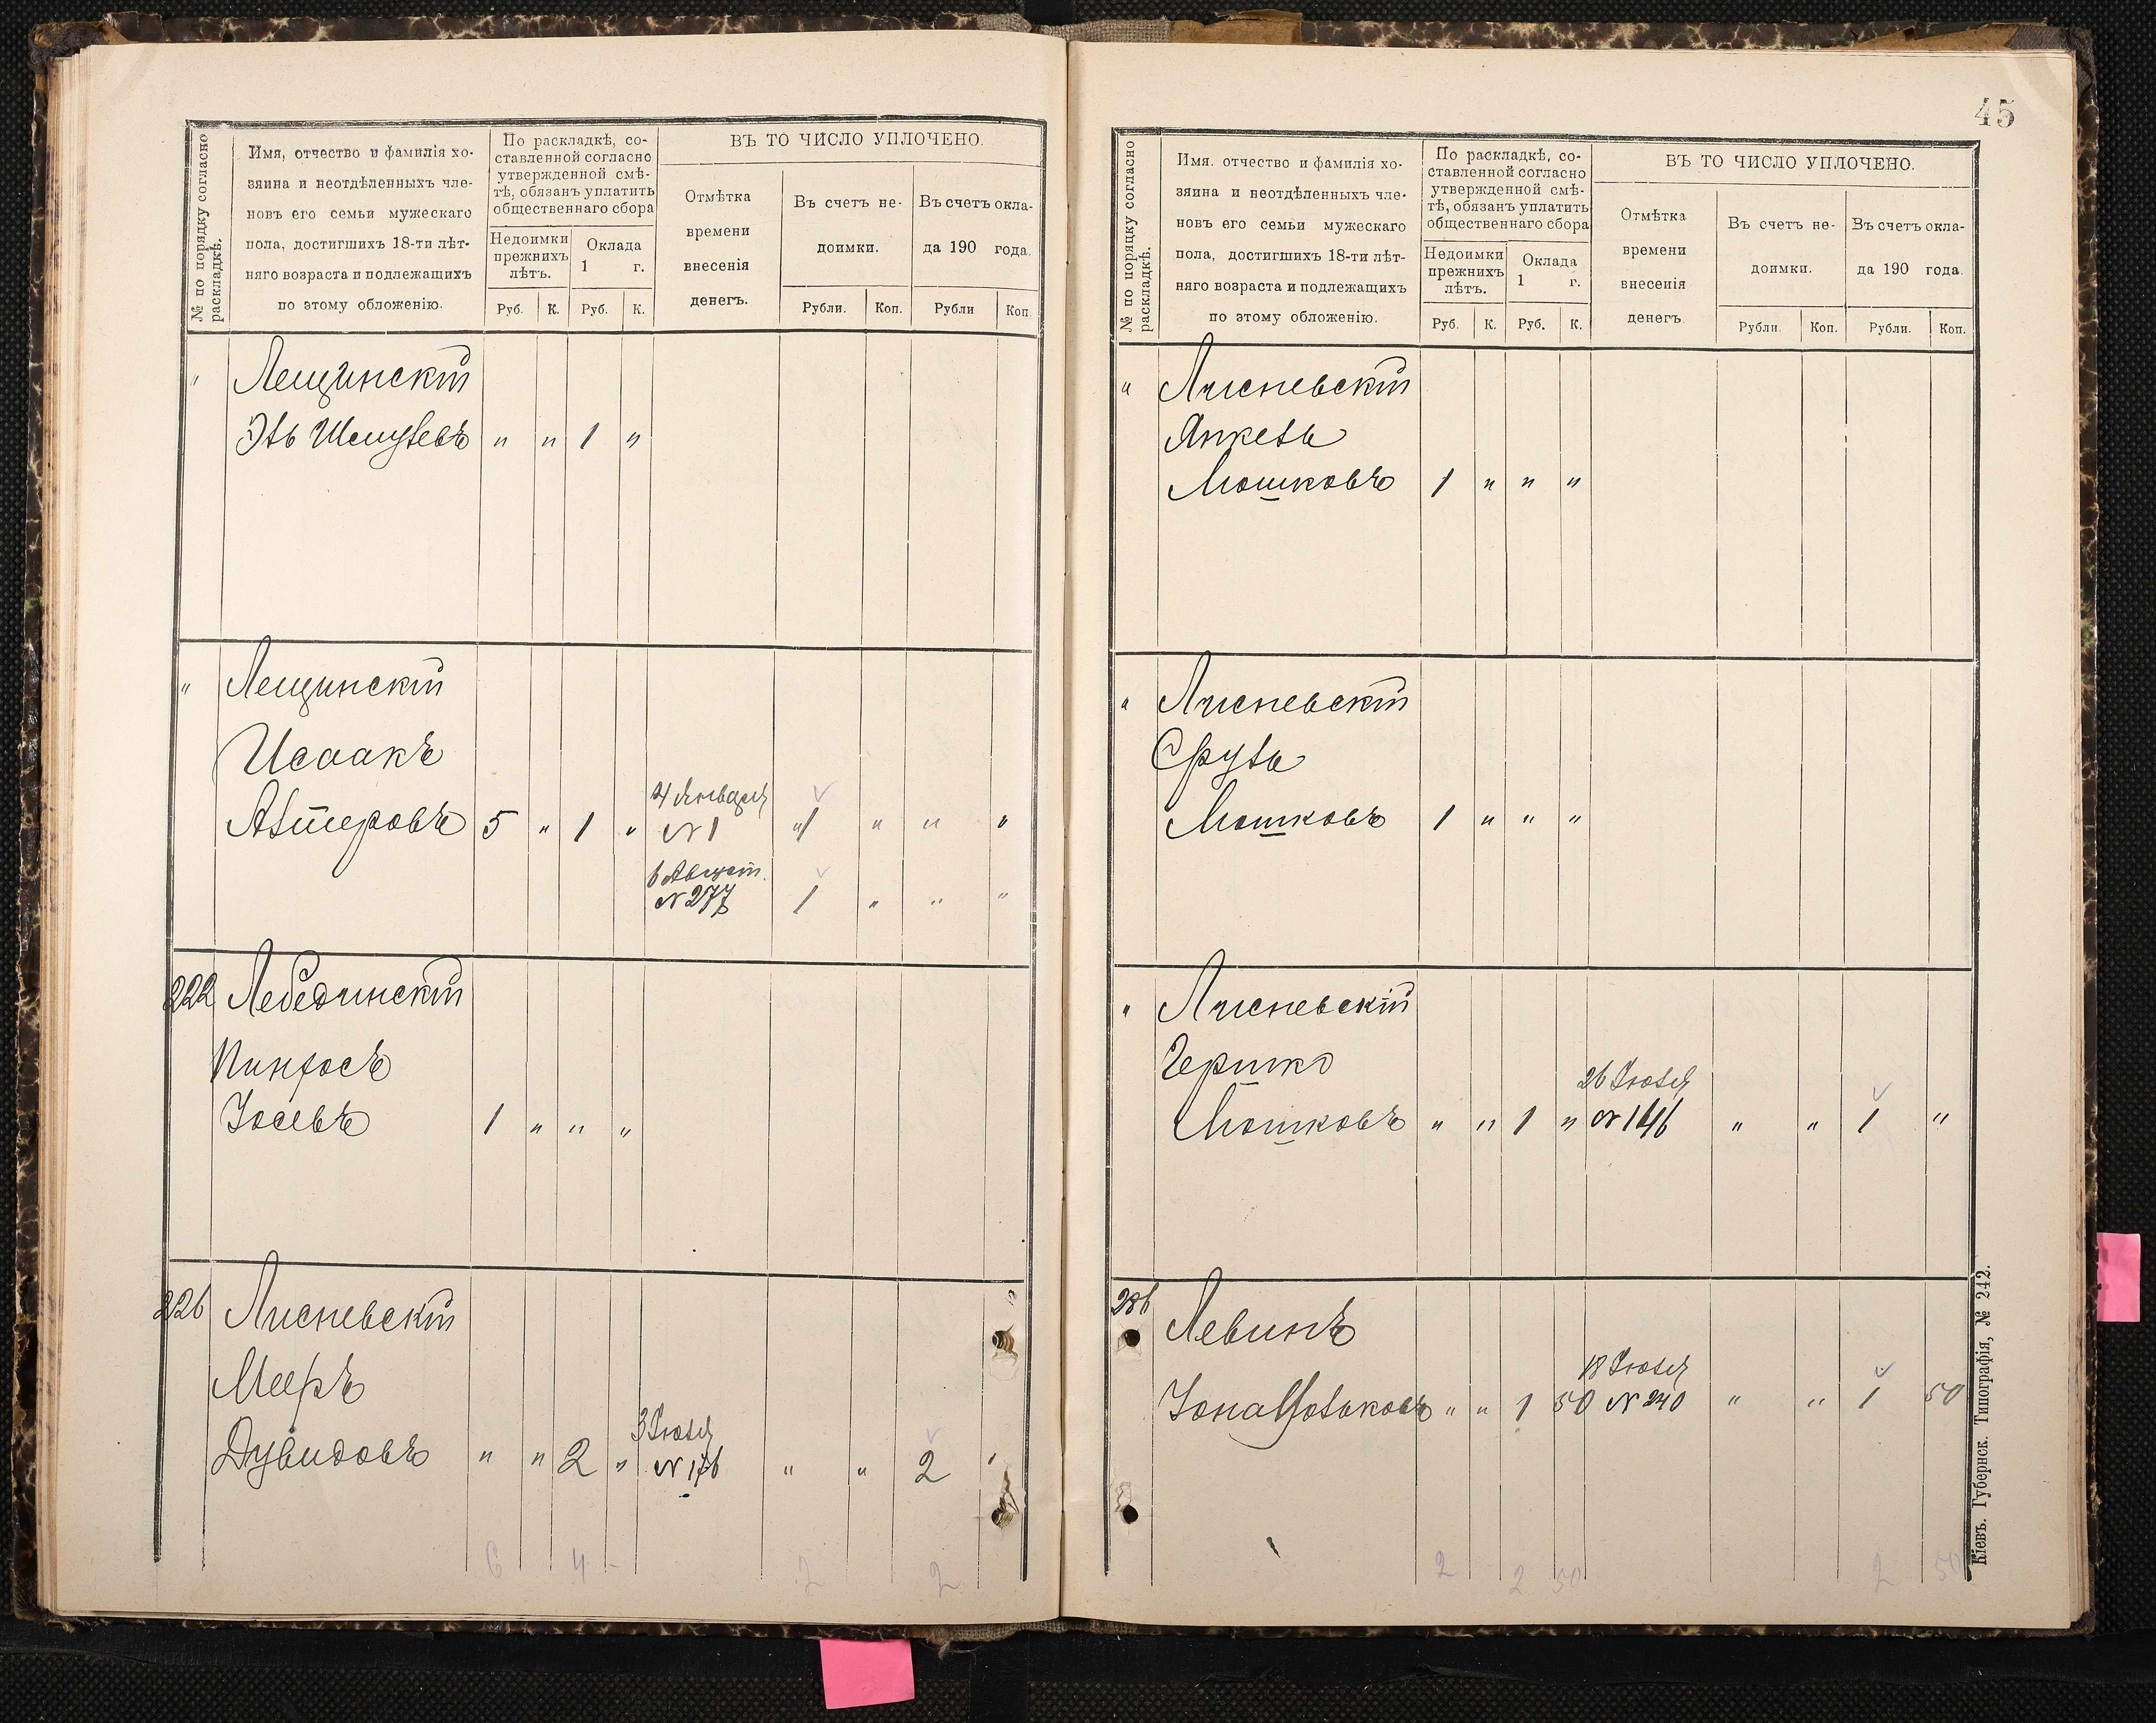 № по порядку согласно раскладкѣ.
Имя, отчество и фамилія хо-
зяина и неотдѣленныхъ чле-
новъ его семьи мужескаго
пола, достигшихъ 18-ти лѣт-
няго возраста и подлежащихъ
по этому обложенію.
По раскладкѣ, со-
ставленной согласно
утвержденной смѣ-
тѣ, обязанъ уплатить
общественнаго сбора
Недоимки
прежнихъ
лѣтъ.
Оклада
1 г.
Руб. К. Руб. К.
ВЪ ТО ЧИСЛО УПЛОЧЕНО.
Отмѣтка
времени
внесенія
денегъ.
Въ счетъ не-
доимки.
Въ счетъ окла-
да 190 года.
Рубли. Коп. Рубли Коп.
" Лещинскій
Эль Шмулевъ " " 1 "
" Лещинскій
Исаакъ
4 Января
Альтеровъ 5 " 1 " № 1 "1 " " "
6 Август.
№ 277 1 " " "
222 Лебединскій
Пинхосъ
Іосевъ 1 " " "
226 Лисневскій
Мееръ
3 Іюля
Дувидовъ " " 2 " № 176 " " 2 "
6 4 - 2 2
45
№ по порядку согласно раскладкѣ.
Имя. отчество и фамилія хо-
зяина и неотдѣленныхъ чле-
новъ его семьи мужескаго
пола, достигшихъ 18-ти лѣт-
няго возраста и подлежащихъ
по этому обложенію.
По раскладкѣ, со-
ставленной согласно
утвержденной смѣ-
тѣ, обязанъ уплатить
общественнаго сбора
Недоимки
прежнихъ
лѣтъ.
Оклада
1 г.
Руб. К. Руб. К.
ВЪ ТО ЧИСЛО УПЛОЧЕНО.
Отмѣтка
времени
внесенія
денегъ
Въ счетъ не-
доимки.
Въ счетъ окла-
да 190 года.
Рубли. Коп. Рубли. Коп.
" Лисневскій
Янкель
Мошковъ 1 " " "
" Лисневскій
Сруль
Мошковъ 1 " " "
" Лисневскій
Гершко
26 Іюля
Мошковъ " " 1 " № 146 " " 1 "
286 Левинъ
18 Іюля
Іона " " 1 50 № 240 " " 1 50
2 2 50 2 50
Кіевъ. Губернск. Типографія, № 242.